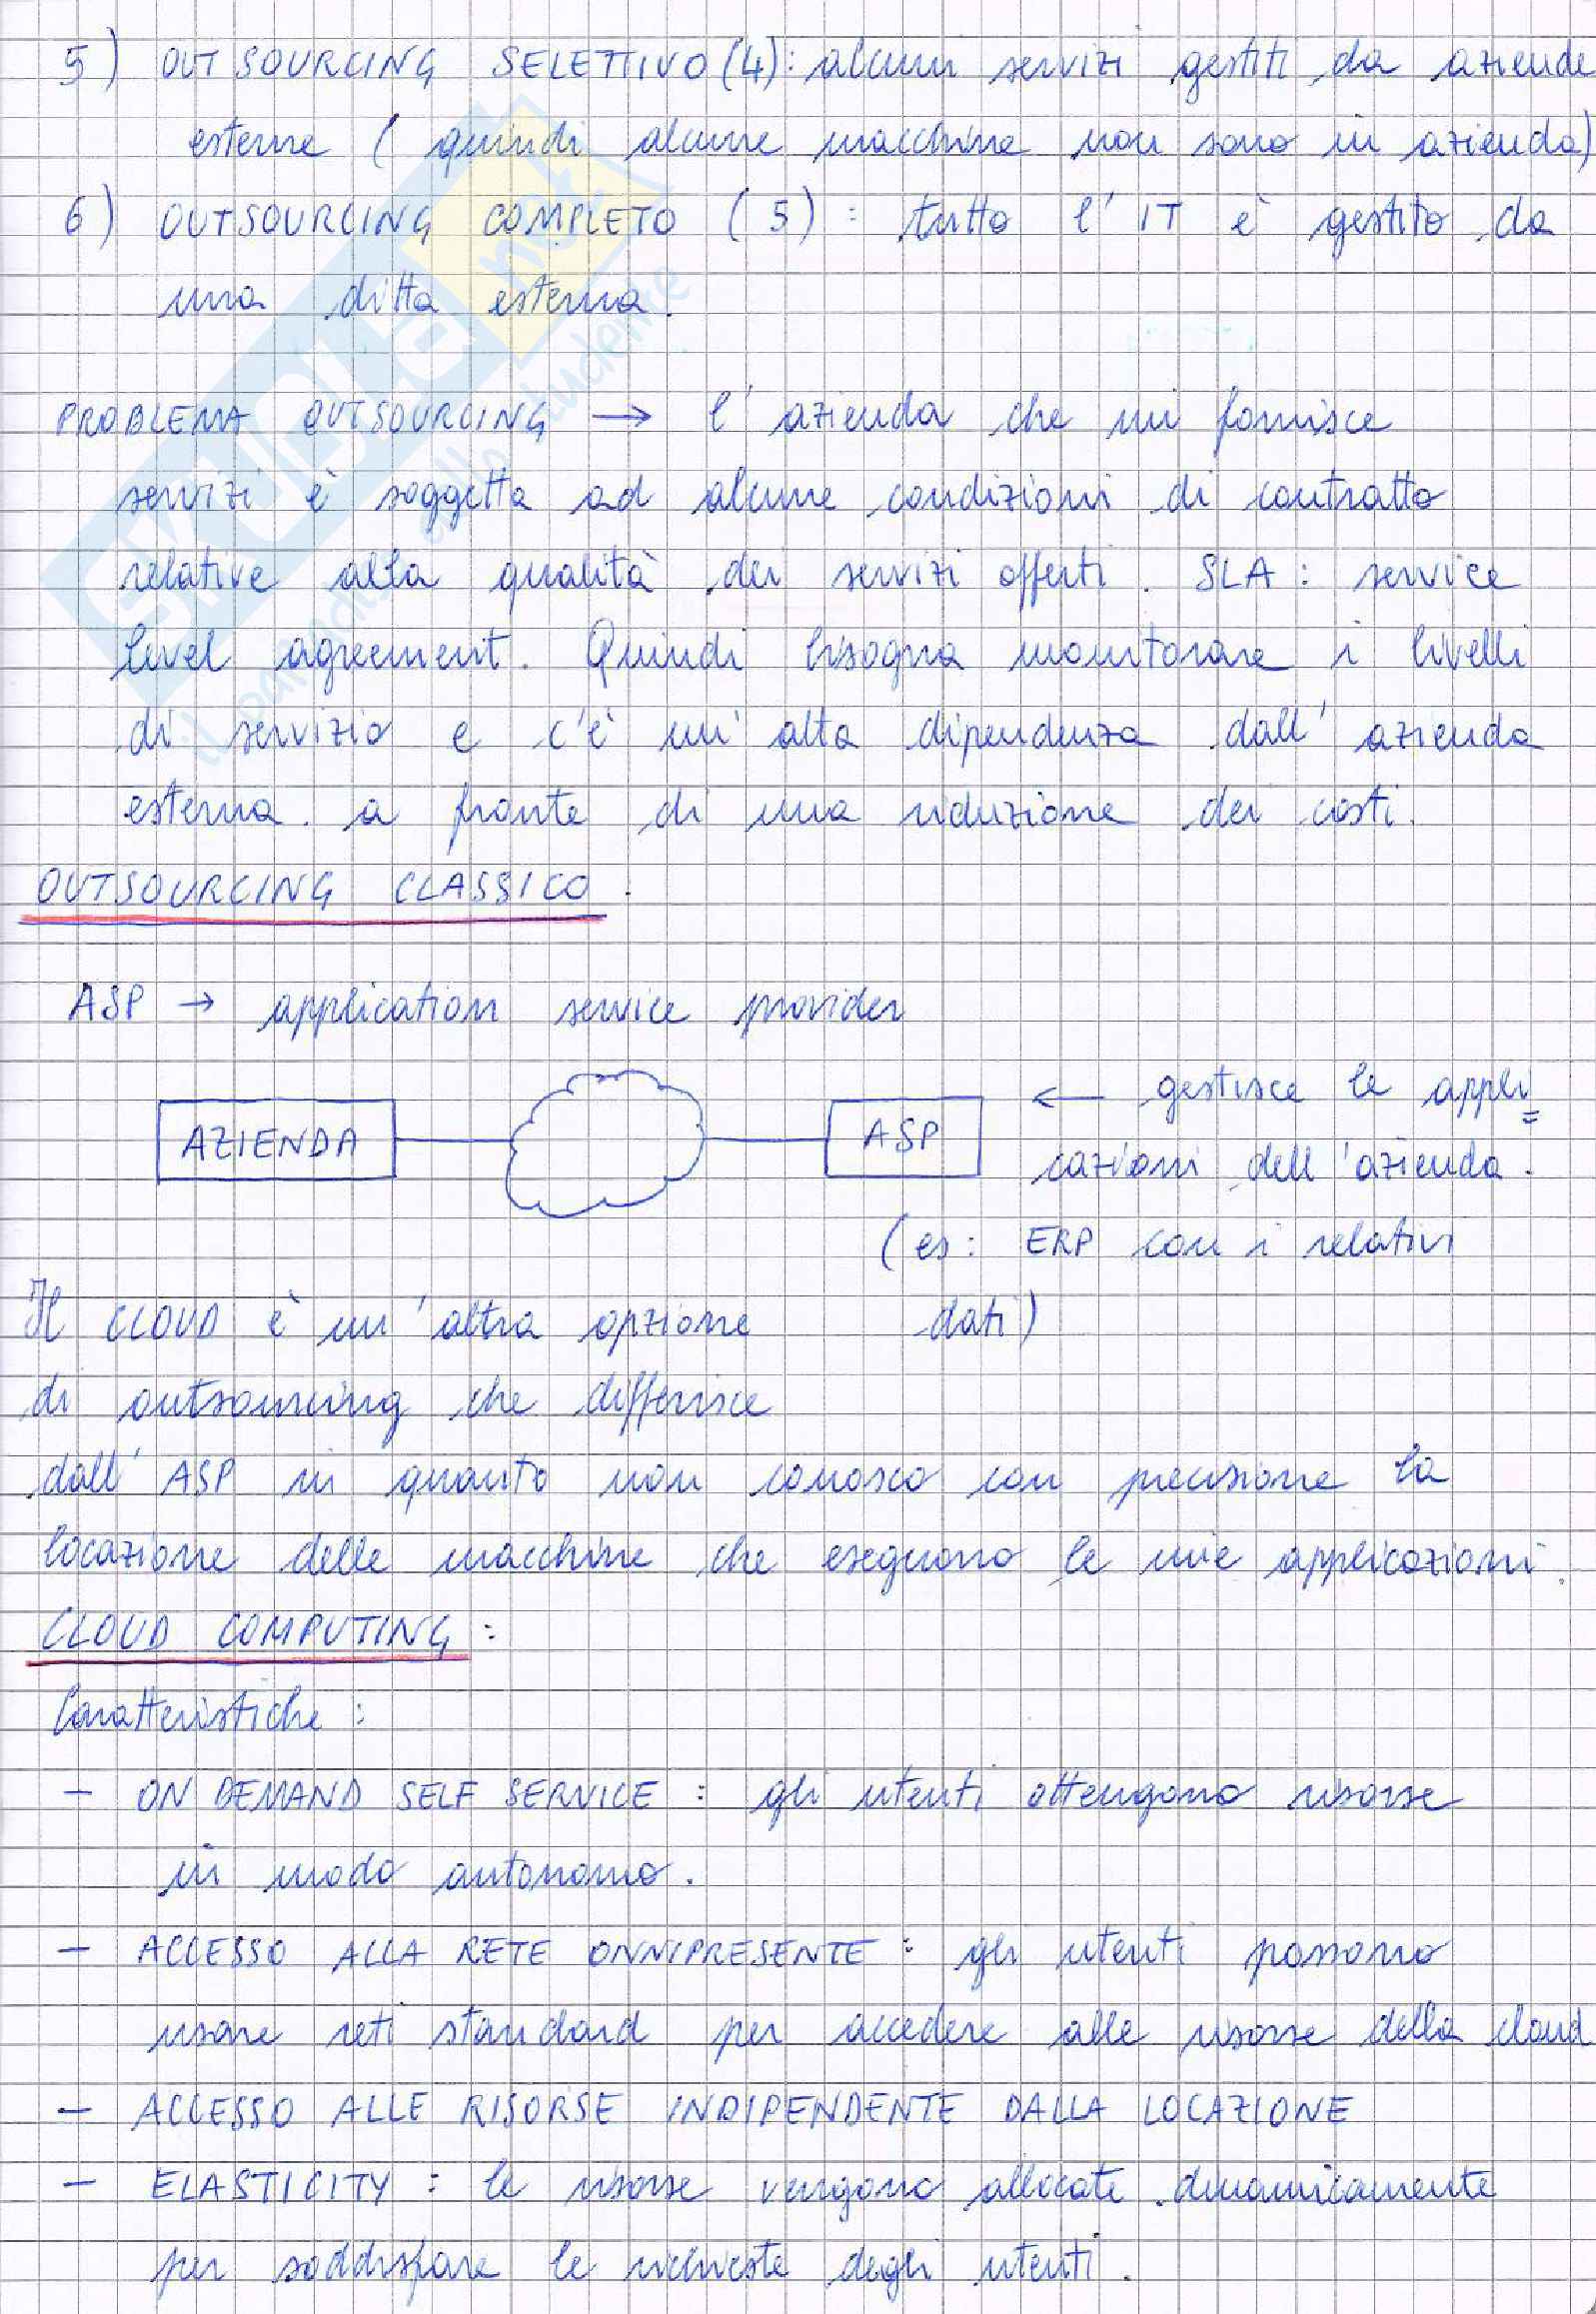 5) OUTSOURCING SELETTIVO (4): alcuni servizi gestiti da aziende
esterne (quindi alcune macchine non sono in azienda)
6) OUTSOURCING COMPLETO (5): tutto l'IT è gestito da
una ditta esterna.
PROBLEMA OUTSOURCING → l'azienda che mi fornisce
servizi è soggetta ad alcune condizioni di contratto
relative alla qualità dei servizi offerti. SLA: service
level agreement. Quindi bisogna monitorare i livelli
di servizio e c'è un'alta dipendenza dall'azienda
esterna a fronte di una riduzione dei costi.
OUTSOURCING CLASSICO:
ASP → application service provider
AZIENDA ASP ← gestisce le appli=
cazioni dell'azienda.
(es: ERP con i relativi
dati)
Il CLOUD è un'altra opzione
di outsourcing che differisce
dall'ASP in quanto non conosco con precisione la
locazione delle macchine che eseguono le mie applicazioni.
CLOUD COMPUTING:
Caratteristiche:
- ON DEMAND SELF SERVICE: gli utenti ottengono risorse
in modo autonomo.
- ACCESSO ALLA RETE ONNIPRESENTE: gli utenti possono
usare reti standard per accedere alle risorse della cloud
- ACCESSO ALLE RISORSE INDIPENDENTE DALLA LOCAZIONE
- ELASTICITY: le risorse vengono allocate dinamicamente
per soddisfare le richieste degli utenti.